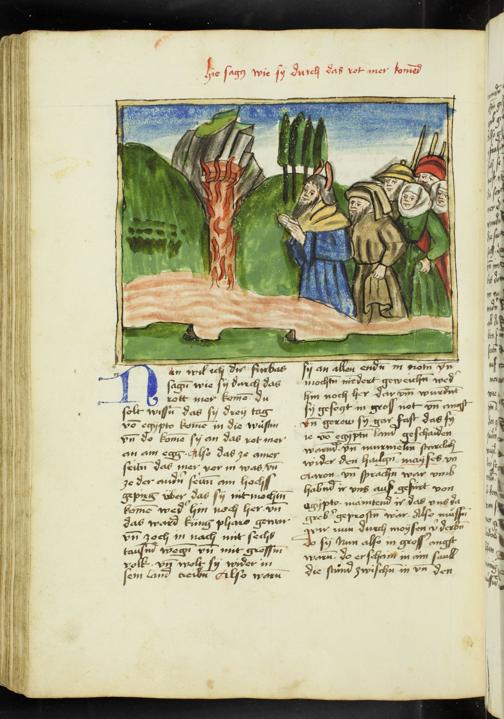 hie sagt wie sy durch das rot mer komed
Nun wil ich dir furbas
sagn wie sy durch das
rott mer kome du
solt wissn das sy dreÿ tag
vō egypto kome in die wustn
vn do kome sy an das rot mer
an am egg Also das ze amer
seitn das mer vor in was vn
ze der andn seitn ain hochs
gepirg uber das sy nit mochtn
kome wed hin noch her vn
das ward kung pharo gewar
vn zoch in nach mit sechs
tausnt wegn vn mit grossm
volk vn wolt sy wider in
sein land treibn Also warn
sy an allen endn in notn vn
mochtn niedert geweichn wed
hin noch her dar vm wurdn
sy gesetzt in gross not vn angst
vn gerow sy gar fast das sy
ie vō egypti land geschaiden
warnd vn murmeltn
wider den hailgn moyses vn
Aaron vn sprachn war umb
habnd ir uns aus gefurt von
egypto maintend ir das uns da
greb geprostn war Also mussn
wir nun durch moysen vderbn
Do sy Nun also in gross angst
warn do erschain in ain saul
die stund zwischn in vn den